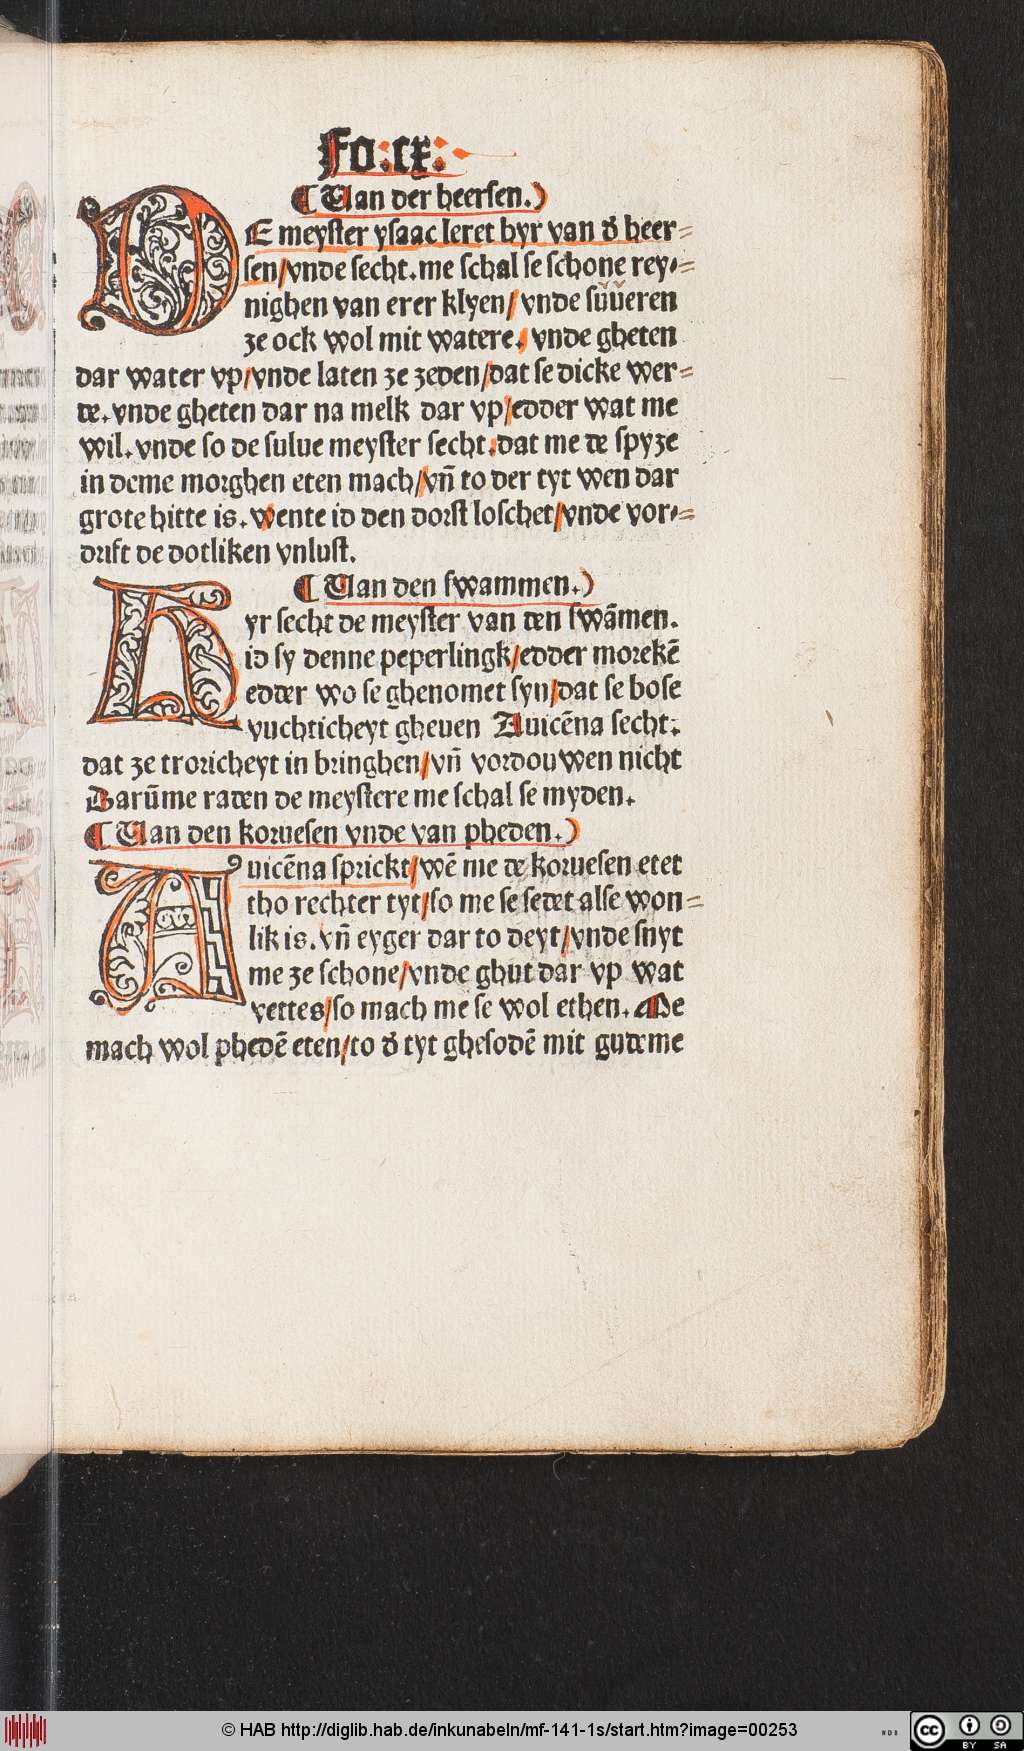 Fo: cx:
(Van der heersen.)
DE meyster ysaac leret hyr van d' heer=
sen/vnde secht. me schal se schone rey=
nighen van erer klyen/ vnde süüeren
ze ock wol mit watere. vnde gheten
dar water vp/vnde laten ze zeden/dat se dicke wer=
de. vnde gheten dar na melk dar vp/edder wat me
wil. vnde so de sulue meyster secht. dat me de spyze
in deme morghen eten mach/vn̄ to der tyt wen dar
grote hitte is. wente id den dorst loschet/vnde vor=
drift de dotliken vnlust.
(Van den swammen.)
Hyr secht de meyster van den swāmen.
id sy denne peperlingk/edder morekē
edder wo se ghenomet syn/dat se bose
vuchticheyt gheuen Auicēna secht.
dat ze troricheyt in bringhen/vn̄ vordouwen nicht
Darūme raden de meystere me schal se myden.
(Van den koruesen vnde van pheden.)
Auicēna sprickt/wē me de koruesen etet
tho rechter tyt/so me se sedet alse won=
lik is. vn̄ eyger dar to deyt/vnde snyt
me ze schone/vnde ghut dar vp wat
vettes/so mach me se wol ethen. Me
mach wol phedē eten/to d' tyt ghesodē mit gudeme
© HAB http://diglib.hab.de/inkunabeln/mf-141-1s/start.htm?image=00253
WDB
cc
BY SA